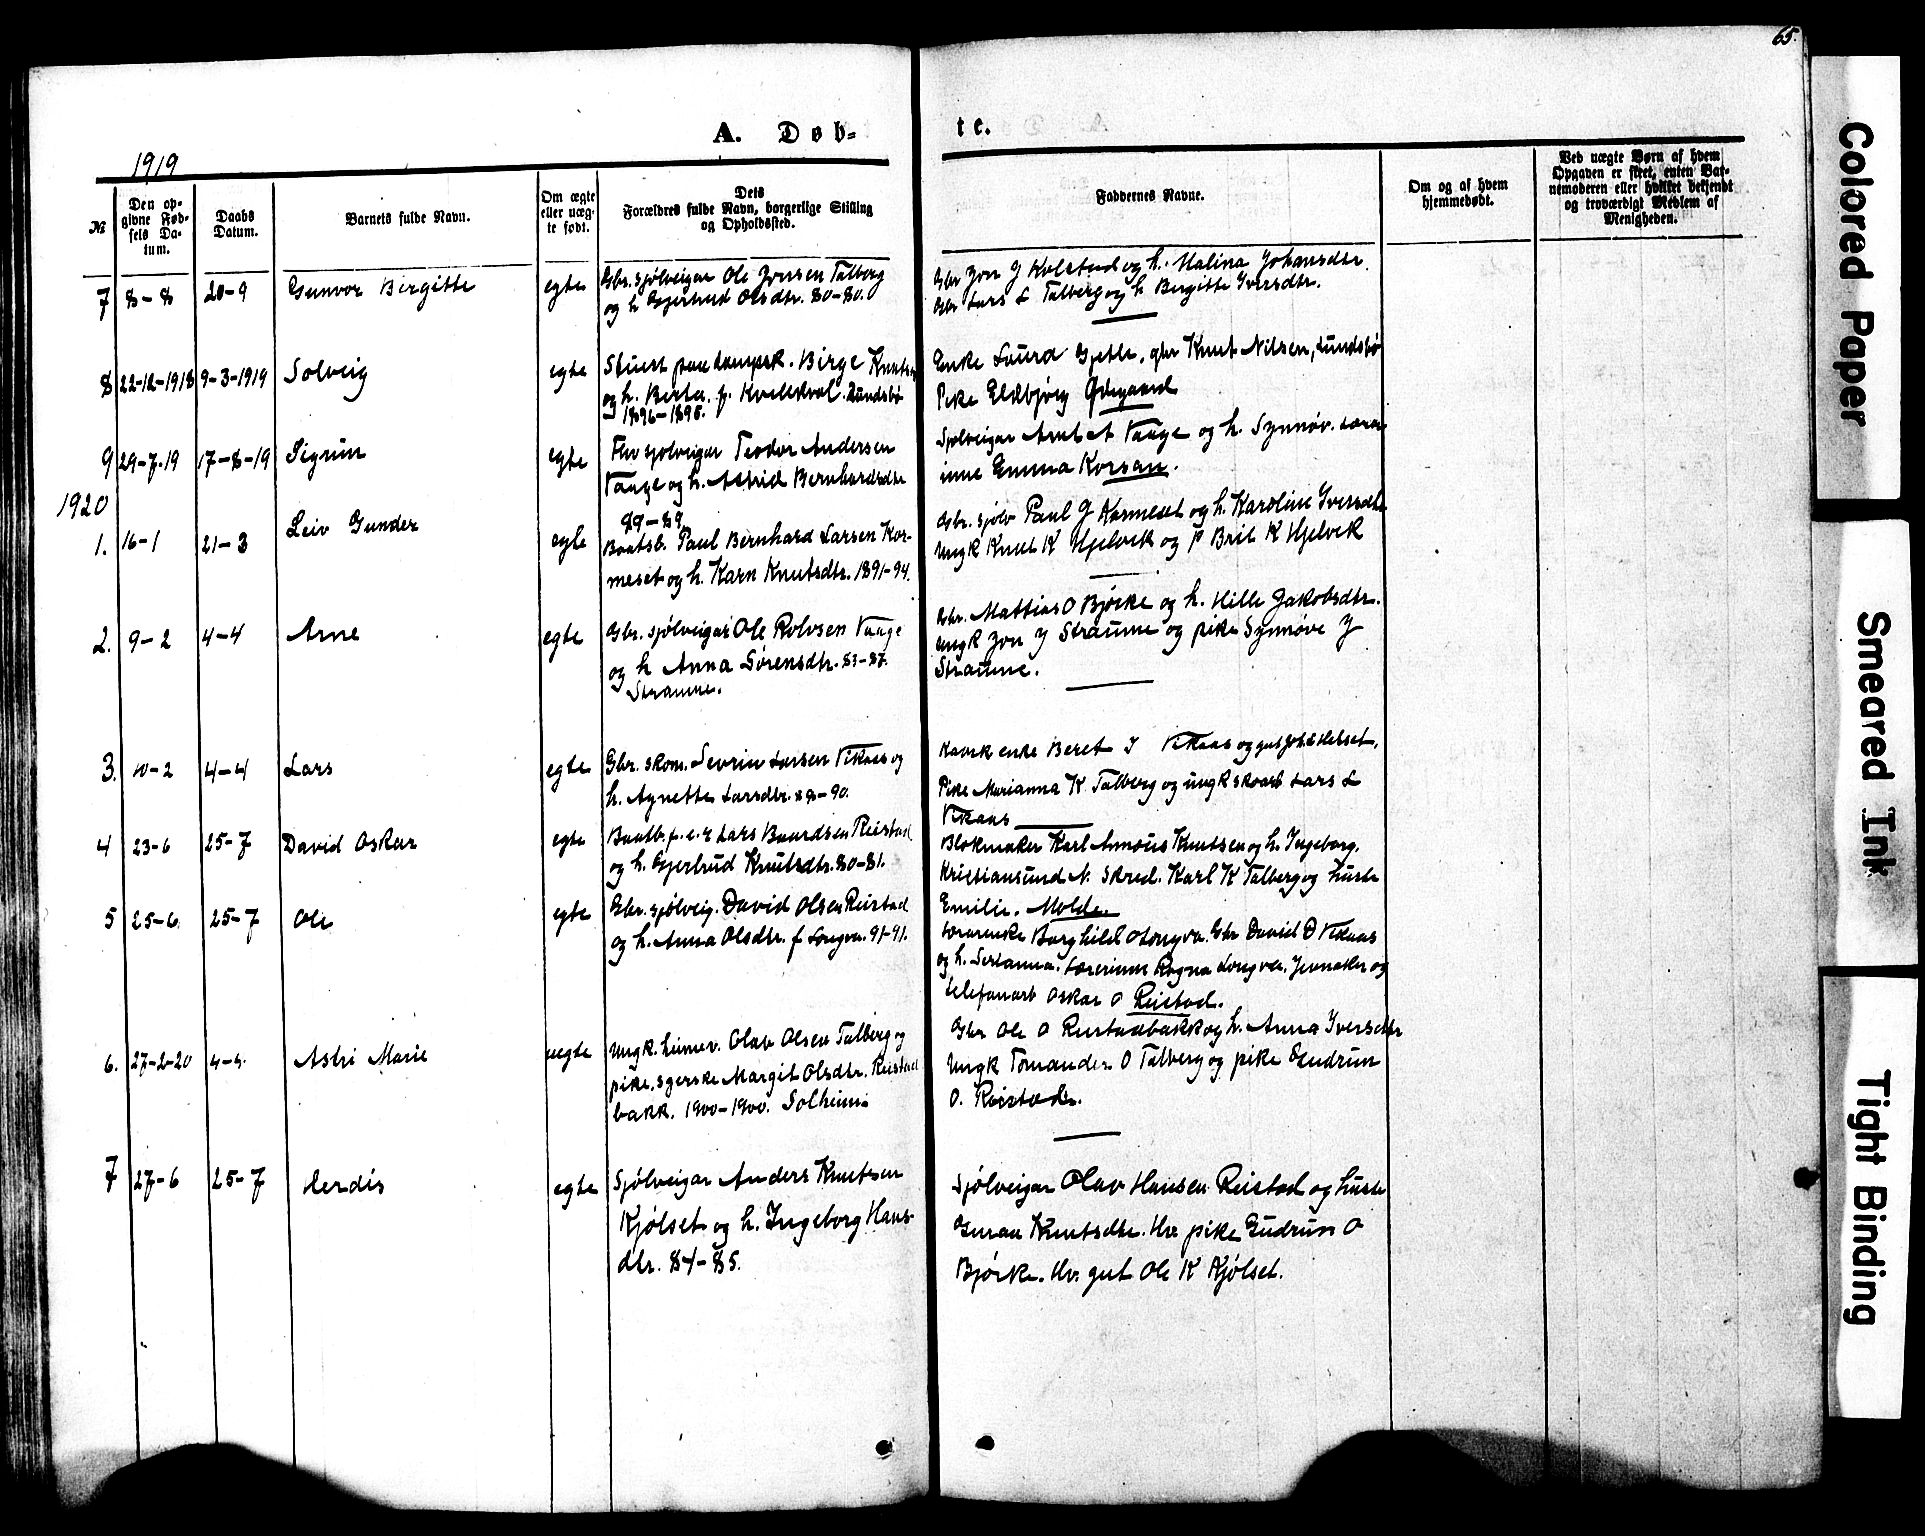 65.
A. Døb-
te.
1919
№
Den op-
givne Fød-
sels Da-
tum.
Daabs
Datum.
Barnets fulde Navn.
Om ægte
eller uæg-
te født.
Dets
Forældres fulde Navn, borgerlige Stilling
og Opholdssted.
Faddernes Navne.
Om og af hvem
hjemmedøbt.
Ved uægte Børn af hvem
Opgaven er skeet, enten Bar-
nemoderen eller hvilket bekjendt
og troværdigt Medlem af
Menigheden.
7 8-8 20-9 Gunvor Birgitte egte
Gbr. sjølveigar Ole Jonsen Talberg
og h Gjertrud Olsdtr. 80-80.
Gbr Jon J Kolstad og h. Malina Johansdtr.
Gbr Lars L Talberg og h Birgitte Iversdtr.
8 22-12-1918 9-3-1919 Solveig egte
Stuert paa dampsk. Birge Knutsen
og h. Berta. f. Lundsbø
1896-1898.
Enke Laura Gjetle, gbr Knut Nilsen, Lundsbø
Pike Eldbjørg Ødegaard
9 29-7-19 17-8-19 Sigrun egte
sjølveigar Teodor Andersen
Vaage og h. Astrid Bernhardsdtr
89-89
Sjølveigar Arnt A Vaage og h. Synnøv. Lærar
inne Emma Korsan.
1920
1. 16-1 21-3 Leiv Gunder egte
Baatsb. Paul Bernhard Larsen Kor-
meset og h. Karn Knutsdtr. 1891-94.
Gbr. sjølv Paul G Kormeset og h. Karoline Iversdtr
Ungk Knut K Hjelvik og p Brit K Hjelvik
2. 9-2 4-4 Arne egte
Gbr. sjølveigar Ole Rolvsen Vaage
og h Anna Sørensdtr. 83-87.
Straume.
Gbr. Mattias O Bjørke og h. Hille Jakobsdtr.
Ungk Jon J Straume og pike Synnøve J
Straume.
3. 10-2 4-4 Lars egte
Gbr. skom. Sevrin Larsen Vikaas og
h. Agnette Larsdtr. 88-90.
enke Beret J Vikaas og
Pike Marianna K Talberg og ungk Lars L
Vikaas
4 23-6 25-7 David Oskar egte
Lars Baardsen Reistad
og h. Gjertrud Knutsdtr. 80-81.
Blokmaker Karl Knutsen og h. Ingeborg.
Kristiansund N. Skred. Karl K Talberg og husk
Emilie. Molde.
5 25-6 25-7 Ole egte
Gbr. sjølveig. David Olsen Reistad
og h. Anna Olsdtr. f Longva. 91-91.
Lærarenke Borghild O Longva. Gbr David D Vikaas
og h. Serianna. Lærerinne Ragna Longva. og
telefonarb Oskar O Reistad.
6. 27-2-20 4-4 Astri Marie uegte
Ungk. heimev. Olav Olsen Talberg og
pike, Margit Olsdtr. Reistad
bakk. 1900-1900. Solheim
Gbr Ole O Reistadbakk og h. Anna Iversdtr
Ungk Tomander O Talberg og pike Gudrun
O. Reistad.
7 27-6 25-7 Herdis egte
Sjølveigar Anders Knutsen
Kjølset og h. Ingeborg Hans-
dtr. 84-85.
Sjølveigar Olav Hansen Reistad og husk
Guraa Knutsdtr. Hv. pike Gudrun O
Bjørke. Hv. gut Ole K Kjølset.
Colored Paper
Smeared Ink
Tight Binding